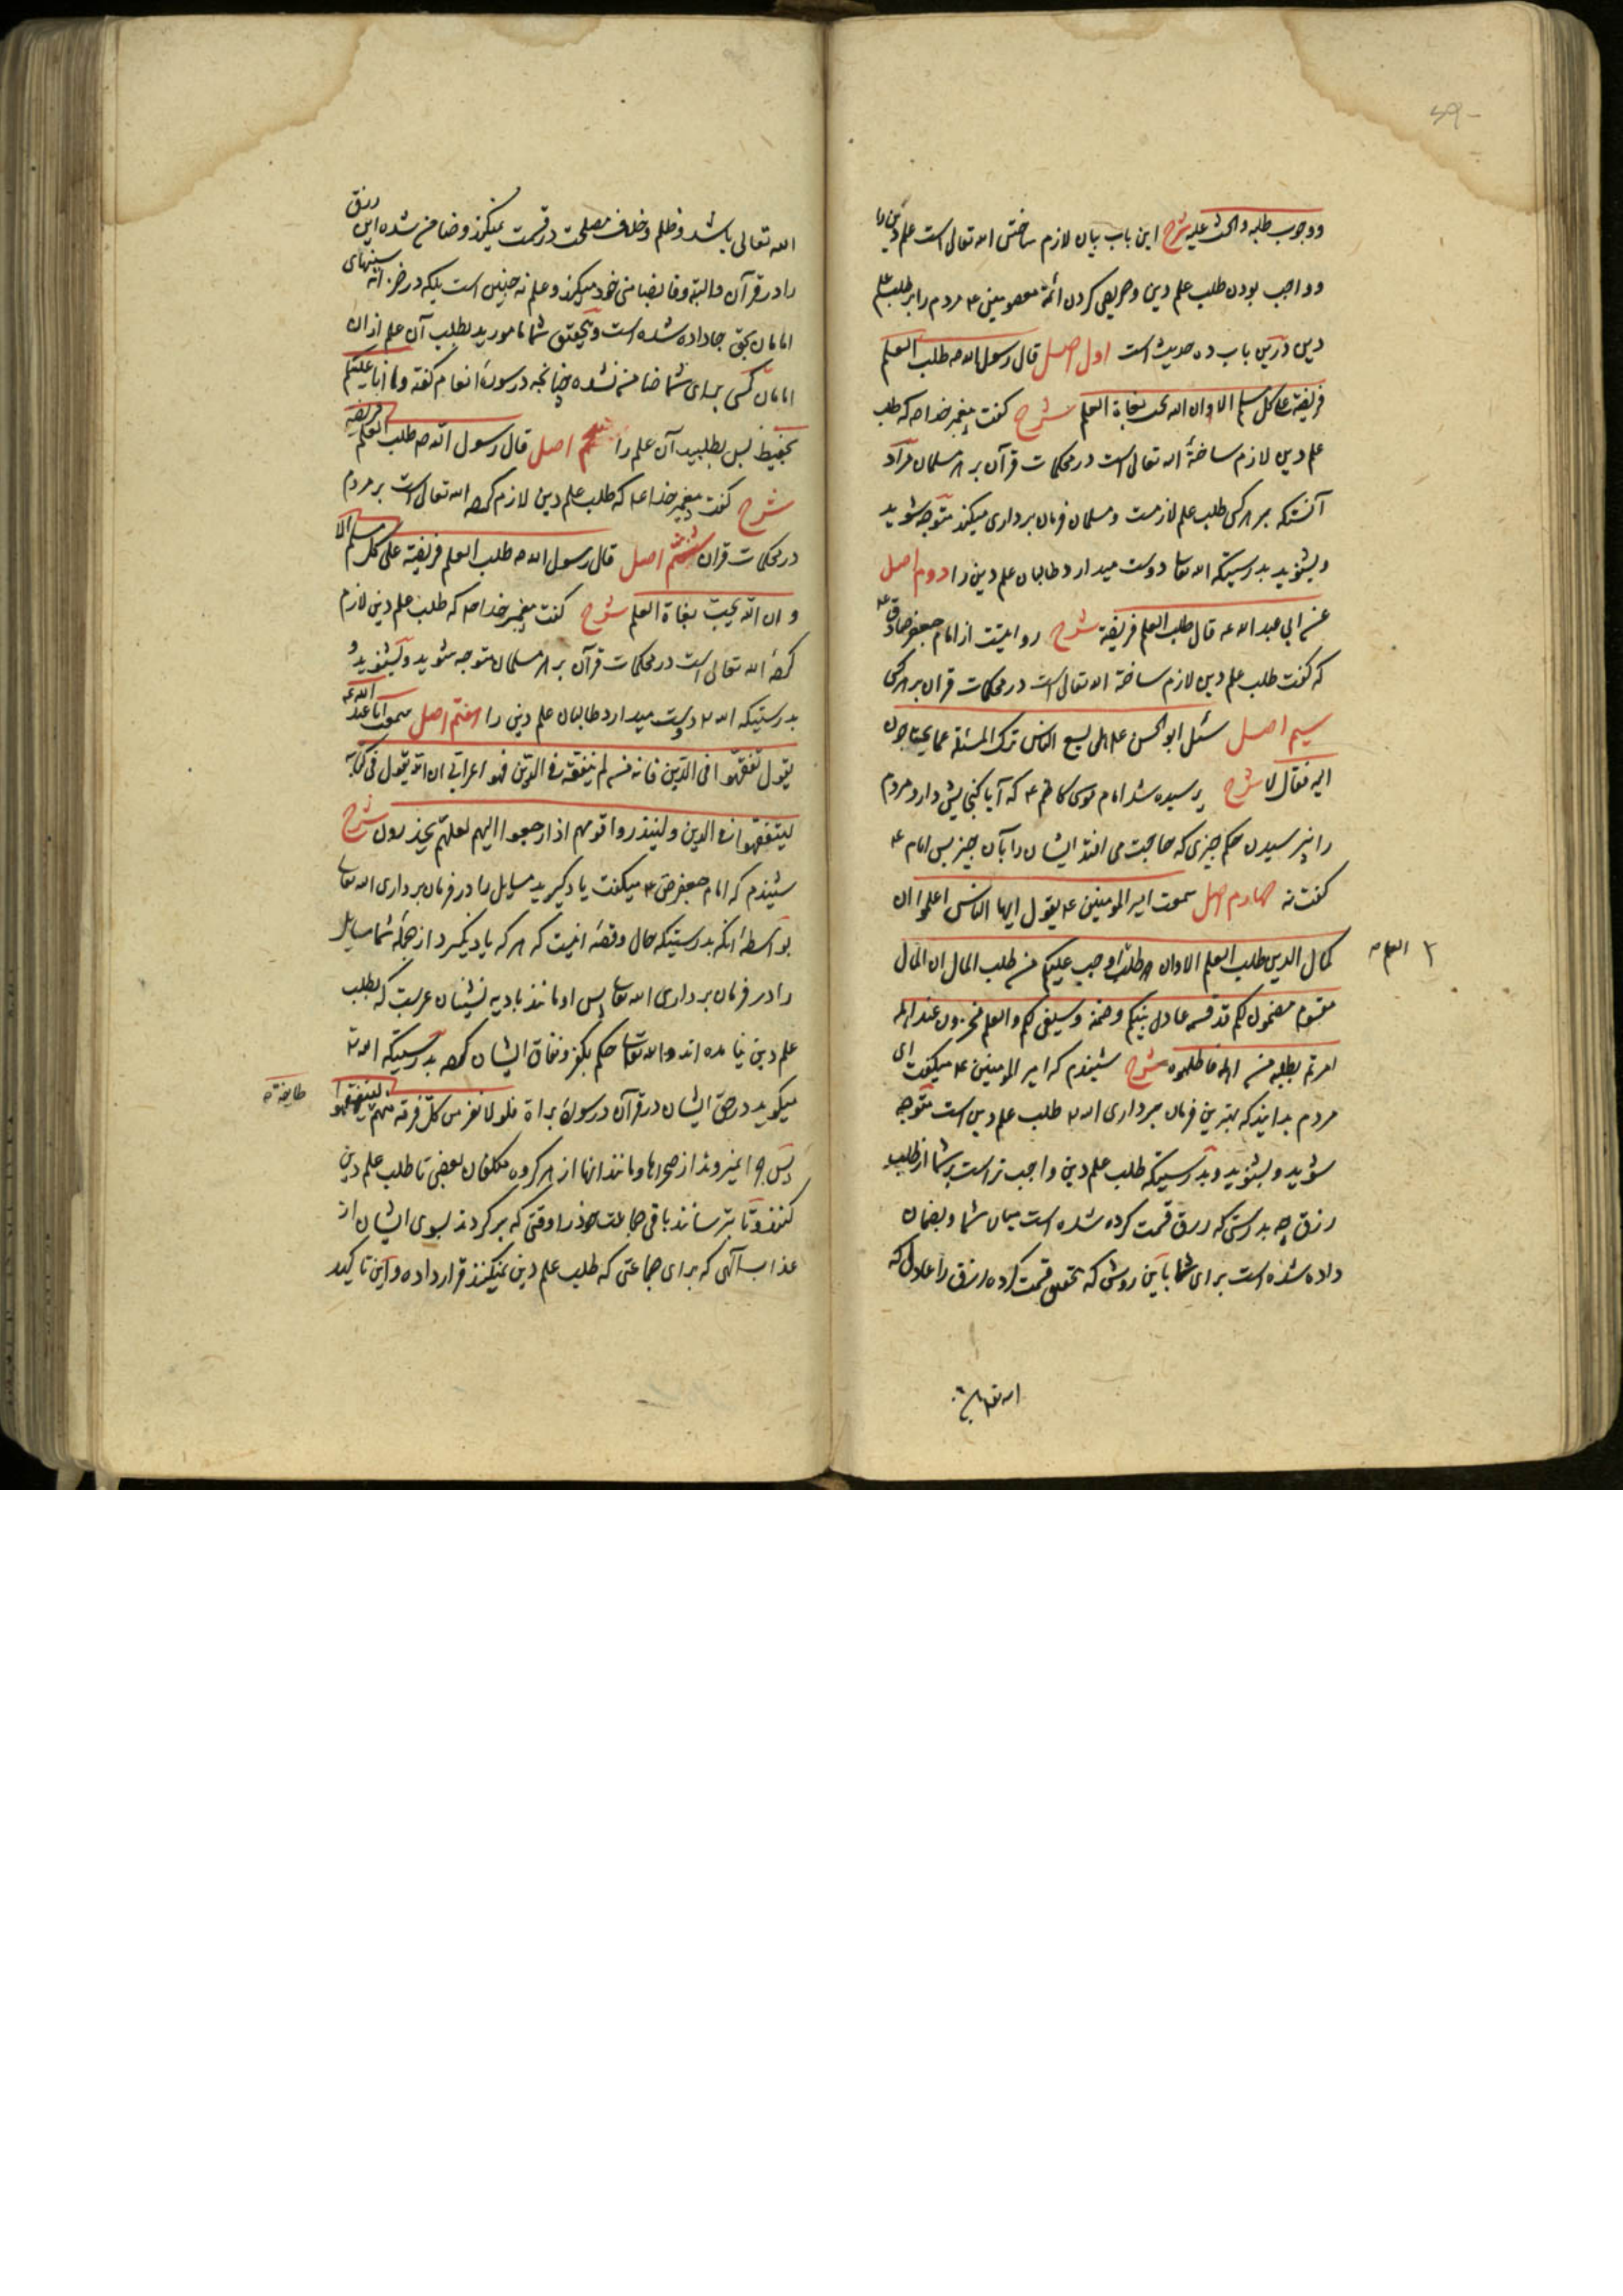 ووجوب طلبه والحث علیه شرح این باب بیان لازم ساختن الله تعالی است علم دین را
وواجب بودن طلب علم دین وحریص کردن ائمهٔ معصومین ع مردم را بر طلب علم
دین درین باب ده حدیث است اول اصل قال رسول الله ص طلب العلم
فریضة علی کل مسلم الا وان الله یحب بغاة العلم شرح گفت پیغمبر خدا ص که طلب
علم دین لازم ساختهٔ الله تعالی است در محکمات قرآن بر هر مسلمان مراد
آنستکه بر هر کس طلب علم لازمست ومسلمان فرمان برداری میکند متوجه شوید
وبشنوید بدرستیکه الله تعالی دوست میدارد طالبان علم دین را دوم اصل
عن ابی عبد الله ع قال طلب العلم فریضة شرح روایتست از امام جعفر صادق ع
که گفت طلب علم دین لازم ساختهٔ الله تعالی است در محکمات قرآن بر هر کس
سیم اصل سئل ابو الحسن ع هل یسع الناس ترک المسئلة عما یحتاجون
الیه فقال لا شرح پرسیده شد امام موسی کاظم ع که آیا گنجایش دارد مردم
را نپرسیدن حکم چیزی که حاجت می افتد ایشان را بآن چیز پس امام ع
گفت نه چهارم اصل سمعت امیر المومنین ع یقول ایها الناس اعلموا ان
کمال الدین طلب العلم الا وان طلب اوجب علیکم من طلب المال ان المال
العلم
مقسوم مضمون لکم قد قسمه عادل بینکم وضمنه وسیفی لکم والعلم مخزون عند اهله
امرتم بطلبه من اهله فاطلبوه شرح شنیدم که امیر المومنین ع میگفت ای
مردم بدانید که بهترین فرمان برداری الله طلب علم دین است متوجه
شوید وبشنوید وبدرستیکه طلب علم دین واجب تر است بر شما از طلب
رزق چه بدرستی که رزق قسمت کرده شده است میان شما وبضمان
داده شده است برای شما باین روش که بتحقیق قسمت کرده رزق را عادل که
الله تعالی
الله تعالی باشد وظلم وخلاف مصلحت در قسمت نمیکند وضامن شده این رزق
را در قرآن والبته وفا بضامنی خود میکند وعلم نه چنین است بلکه در خزانه سینهای
امامان بحق جا داده شده است وبتحقیق شما مامورید بطلب آن علم از آن
امامان کسی برای شما ضامن نشده چنانچه در سورهٔ انعام گفته وما انا علیکم
بحفیظ پس بطلبید آن علم را پنجم اصل قال رسول الله ص طلب العلم فریضة
شرح گفت پیغمبر خدا که طلب علم دین لازم کردهٔ الله تعالی است بر مردم
در محکمات قرآن ششم اصل قال رسول الله ص طلب العلم فریضة علی کل مسلم الا
وان الله یحب بغاة العلم شرح گفت پیغمبر خدا ص که طلب علم دین لازم
کردهٔ الله تعالی است در محکمات قرآن بر هر مسلمان متوجه شوید وبشنوید
بدرستیکه الله دوست میدارد طالبان علم دین را هفتم اصل سمعت ابا عبد الله ع
یقول تفقهوا فی الدین فانه من لم یتفقه فی الدین فهو اعرابی ان الله یقول فی کتابه
لیتفقهوا فی الدین ولینذروا قومهم اذا رجعوا الیهم لعلهم یحذرون شرح
شنیدم که امام جعفر ص ع میگفت یاد گیرید مسایل را در فرمان برداری الله تعالی
بواسطهٔ آنکه بدرستیکه حال وقصه اینست که هر که یاد نگیرد از جملهٔ شما مسایل
را در فرمان برداری الله تعالی پس او مانند بادیه نشینان عربست که بطلب
علم دین نیامده اند والله تعالی حکم بکفر ونفاق ایشان کرده بدرستیکه الله
میگوید در حق ایشان در قرآن در سورهٔ براة فلولا نفر من کل فرقة منهم لیتفقهوا
طایفة
پس چرا نمیروند از صحراها ومانند آنها از هر گروه مکلفان بعضی تا طلب علم دین
کنند وتا بترسانند باقی جماعت خود را وقتی که برگردند بسوی ایشان از
عذاب الهی که برای جماعتی که طلب علم دین نمیکنند قرار داده واین تاکید